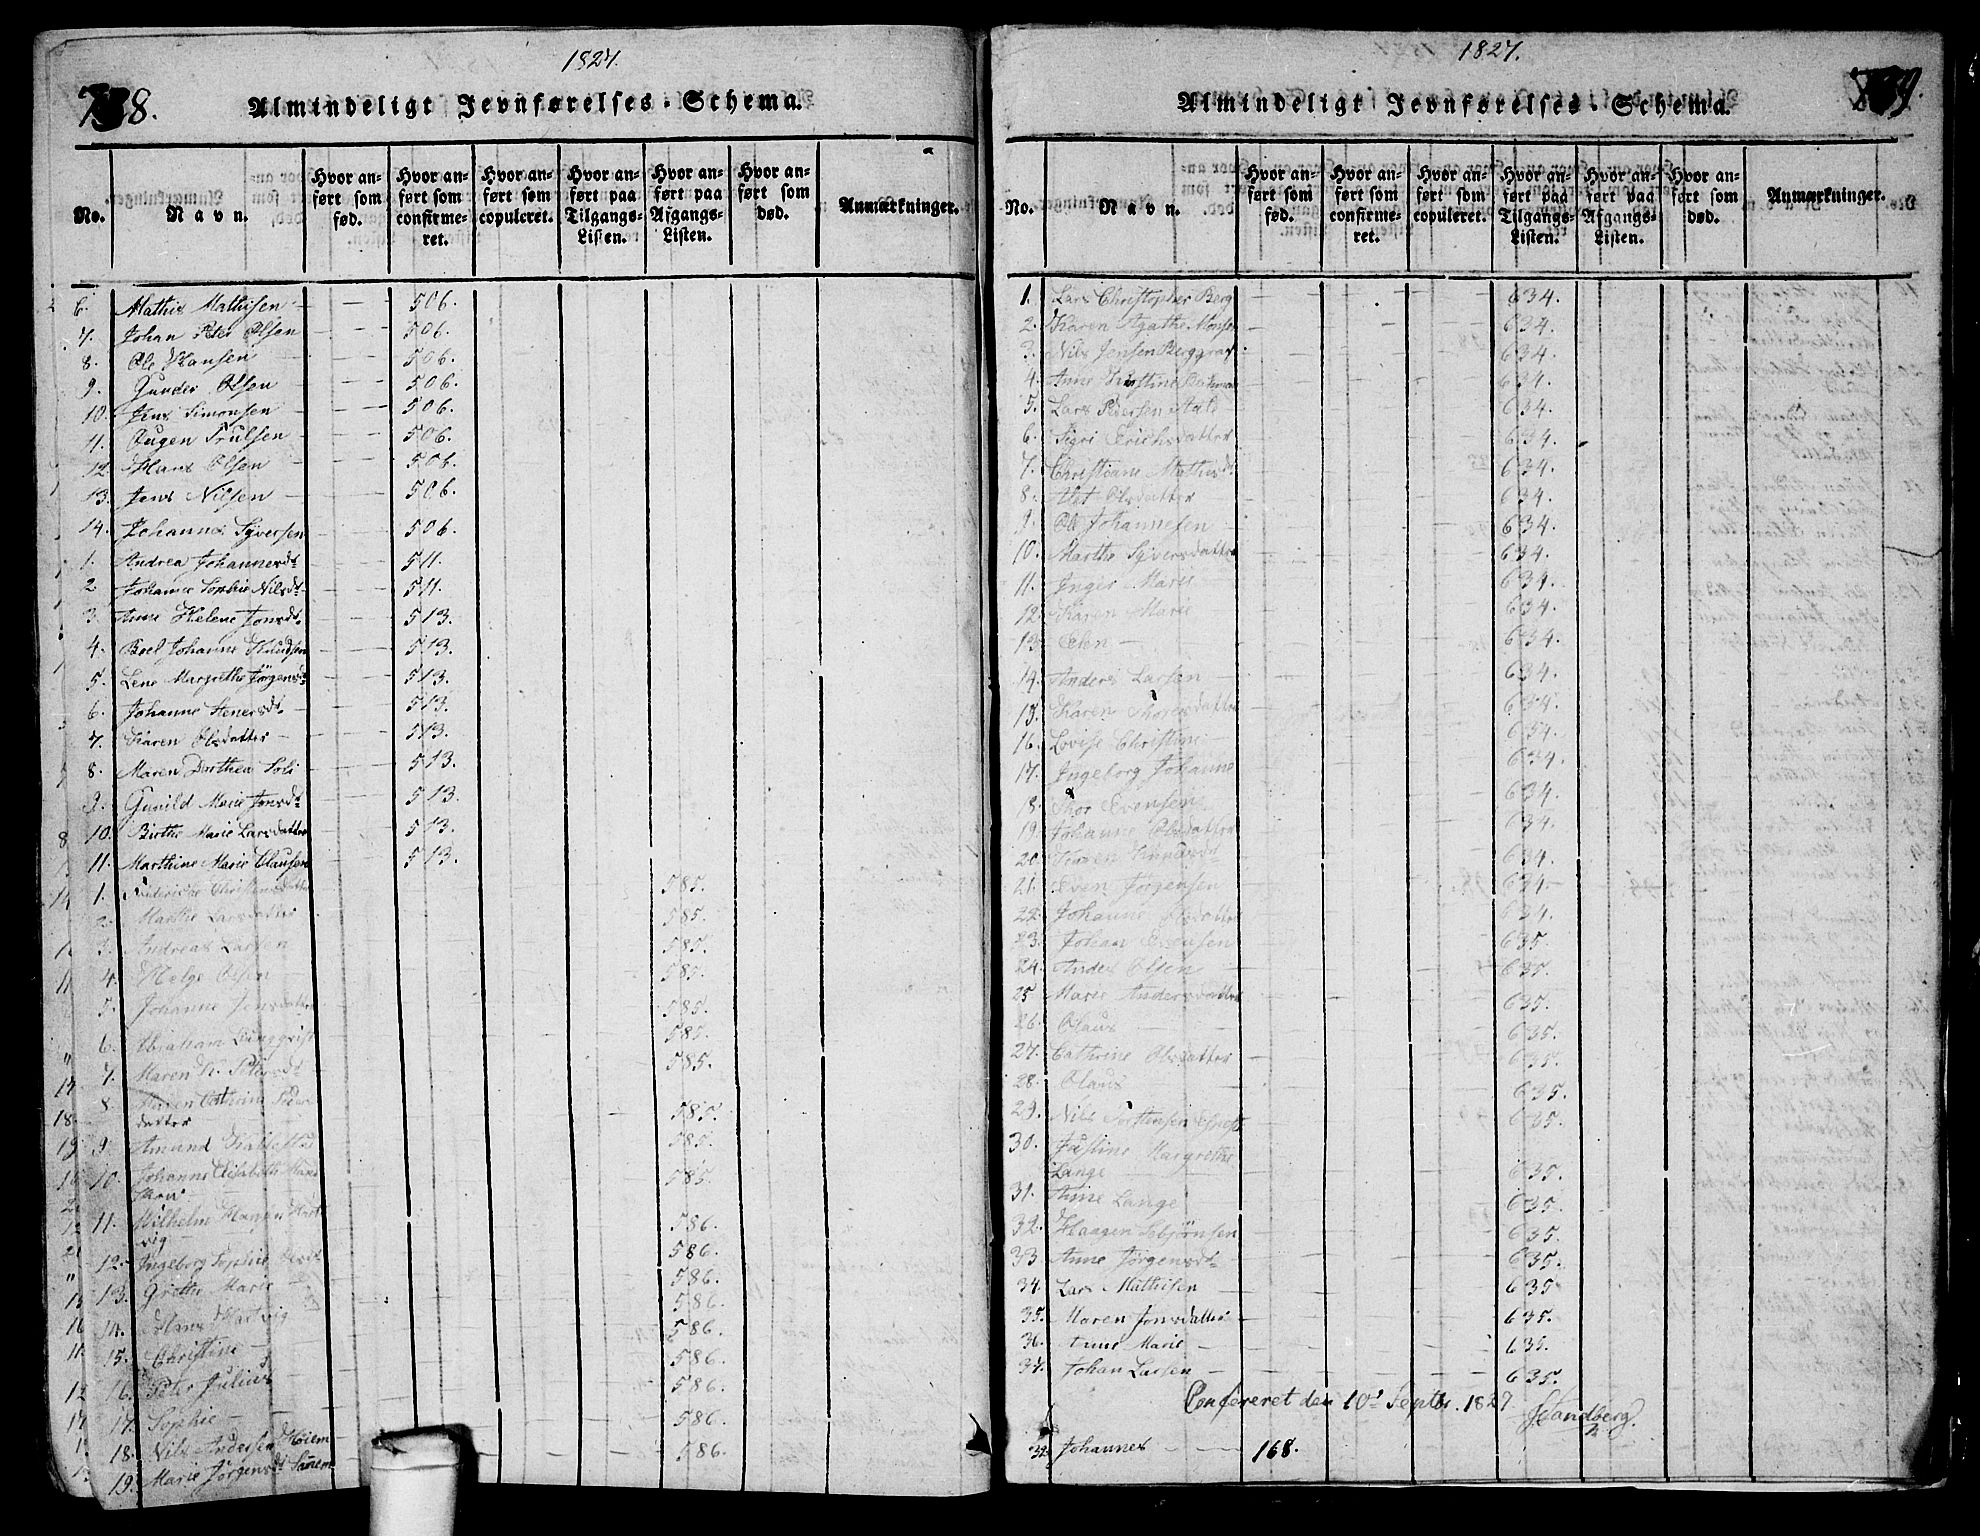 1827.
738.
Almindeligt Jevnførelses-Schema.
No. Navn. Hvor anført som fød. Hvor anført som confirmeret. Hvor anført som copuleret. Hvor anført paa Tilgangs-Listen. Hvor anført paa Afgangs-Listen. Hvor anført som død. Anmærkninger.
6. Mathis Mathisen 506.
7. Johan Peter Olsen 506.
8. Ole Hansen 506.
9. Gunder Olsen 506.
10. Jens Simonsen 506.
11. Trulsen 506.
12. Hans Olsen 506.
13. Jens Nilsen 506.
14. Johannes Syversen 506.
1. Andrea Johannesdt 511.
2. Johanne Sophie Nilsdt 511.
3. Anne Helene Jonsdt 513.
4. Boel Johanne Knudsen 513.
5. Lene Margrethe Jørgensdt 513.
6. Johanne Stenersdt 513.
7. Karen Olsdatter 513.
8. Maren Dorthea Soli 513.
9. Gunild Marie Jonsdt 513.
10. Birthe Marie Larsdatter 513.
11. Marthine Marie Clausen 513.
1. Friderike Christensdatter 585.
2. Marthe Larsdatter 585.
3. Andreas Larsen 585.
4. Helge Olsen 585.
5. Johanne Jensdatter 585.
6. Abraham Lingqvist 585.
7. Maren K. Petersdt 585.
8. Maren Cathrine Pedersdatter 585.
9. Amund 585.
10. Johanne Elisabeth 585.
11. Wilhelm Hansen Hartvig 586.
12. Ingeborg Sophie 586.
13. Grethe Marie 586.
14. Hans Hartvig 586.
15. Christine 586.
16. Peter Julius 586.
17. Sophie 586.
18. Nils Andersen Holm 586.
19. Marie Jørgensdt Sanem
1827.
739.
Almindeligt Jevnførelses-Schema.
No. Navn. Hvor anført som fød. Hvor anført som confirmeret. Hvor anført som copuleret. Hvor anført paa Tilgangs-Listen. Hvor anført paa Afgangs-Listen. Hvor anført som død. Anmærkninger.
1. Lars Christopher Berg 634.
2. Karen Agathe Monsen 634.
3. Nils Jensen Berggraf 634.
4. Anne Kirstine 634.
5. Lars Pedersen 634.
6. Sigri Erichsdatter 634.
7. Christiane Mathisdt 634.
8. Alet Olsdatter 634.
9. Ole Johannesen 634.
10. Marthe Syversdatter 634.
11. Inger Marie 634.
12. Karen Marie 634.
13. Elen 634.
14. Anders Larsen 634.
15. Karen Thoresdatter 634.
16. Lovise Christine 634.
17. Ingeborg Johanne 634.
18. Thor Evensen 634.
19. Johanne Olsdatter 634.
20. Karen Knudsdt 634.
21. Even Jørgensen 634.
22. Johanne Olsdatter 634.
23. Johan Evensen 635.
24. Anders Olsen 635.
25. Marie Andersdatter 635.
26. Olaus 635.
27. Cathrine Olsdatter 635.
28. Olaus 635.
29. Nils Torstensen 635.
30. Justine Margrethe
Lange 635.
31. Anne Lange 635.
32. Haagen Sebjørnsen 635.
33. Anne Jørgensdt 635.
34. Lars Mathisen 635
35. Maren Jonsdatter 635.
36. Anne Marie 635.
37. Johan Larsen 635.
Confereret den 10de Septbr. 1827 Sandberg.
32. Johannes 168.